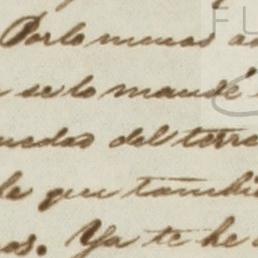 FU
Por lo menos a
se lo mandé
uedad del terre
le que tambié
os. Ya te he